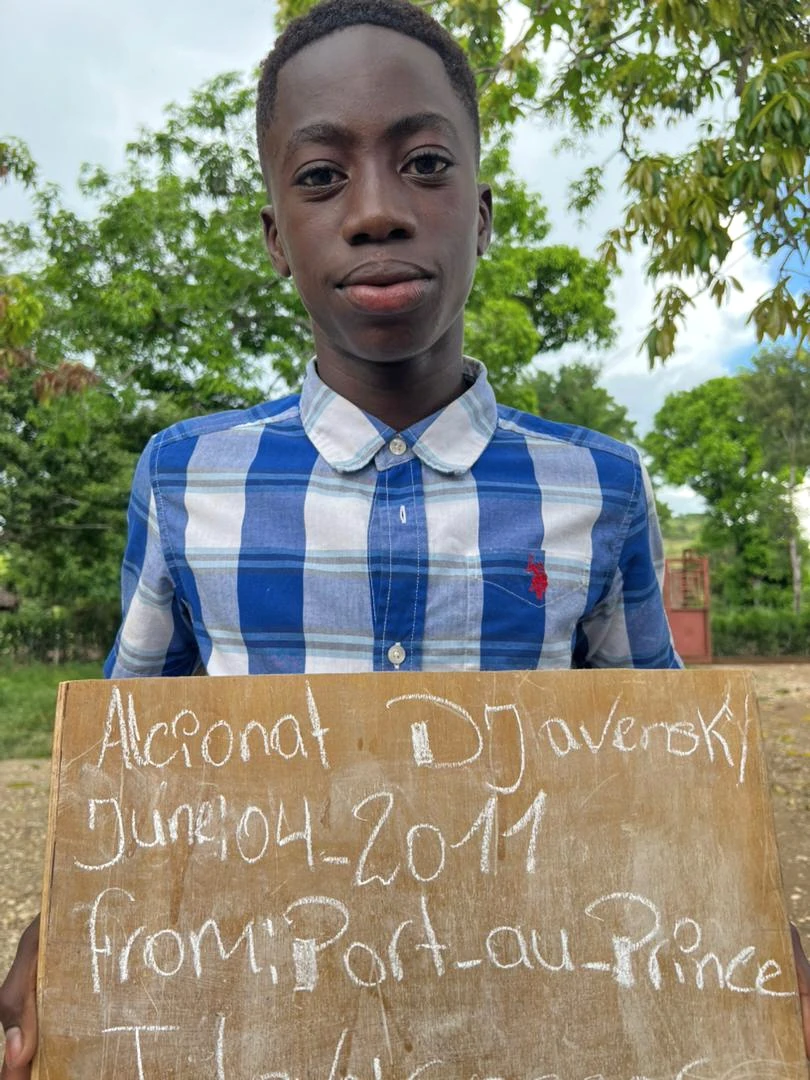 Alcionat DJavensky
June,04-2011
from; Port-au-Prince